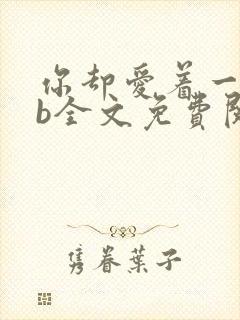 你却愛着一
b全文免費閱
隽眷葉子